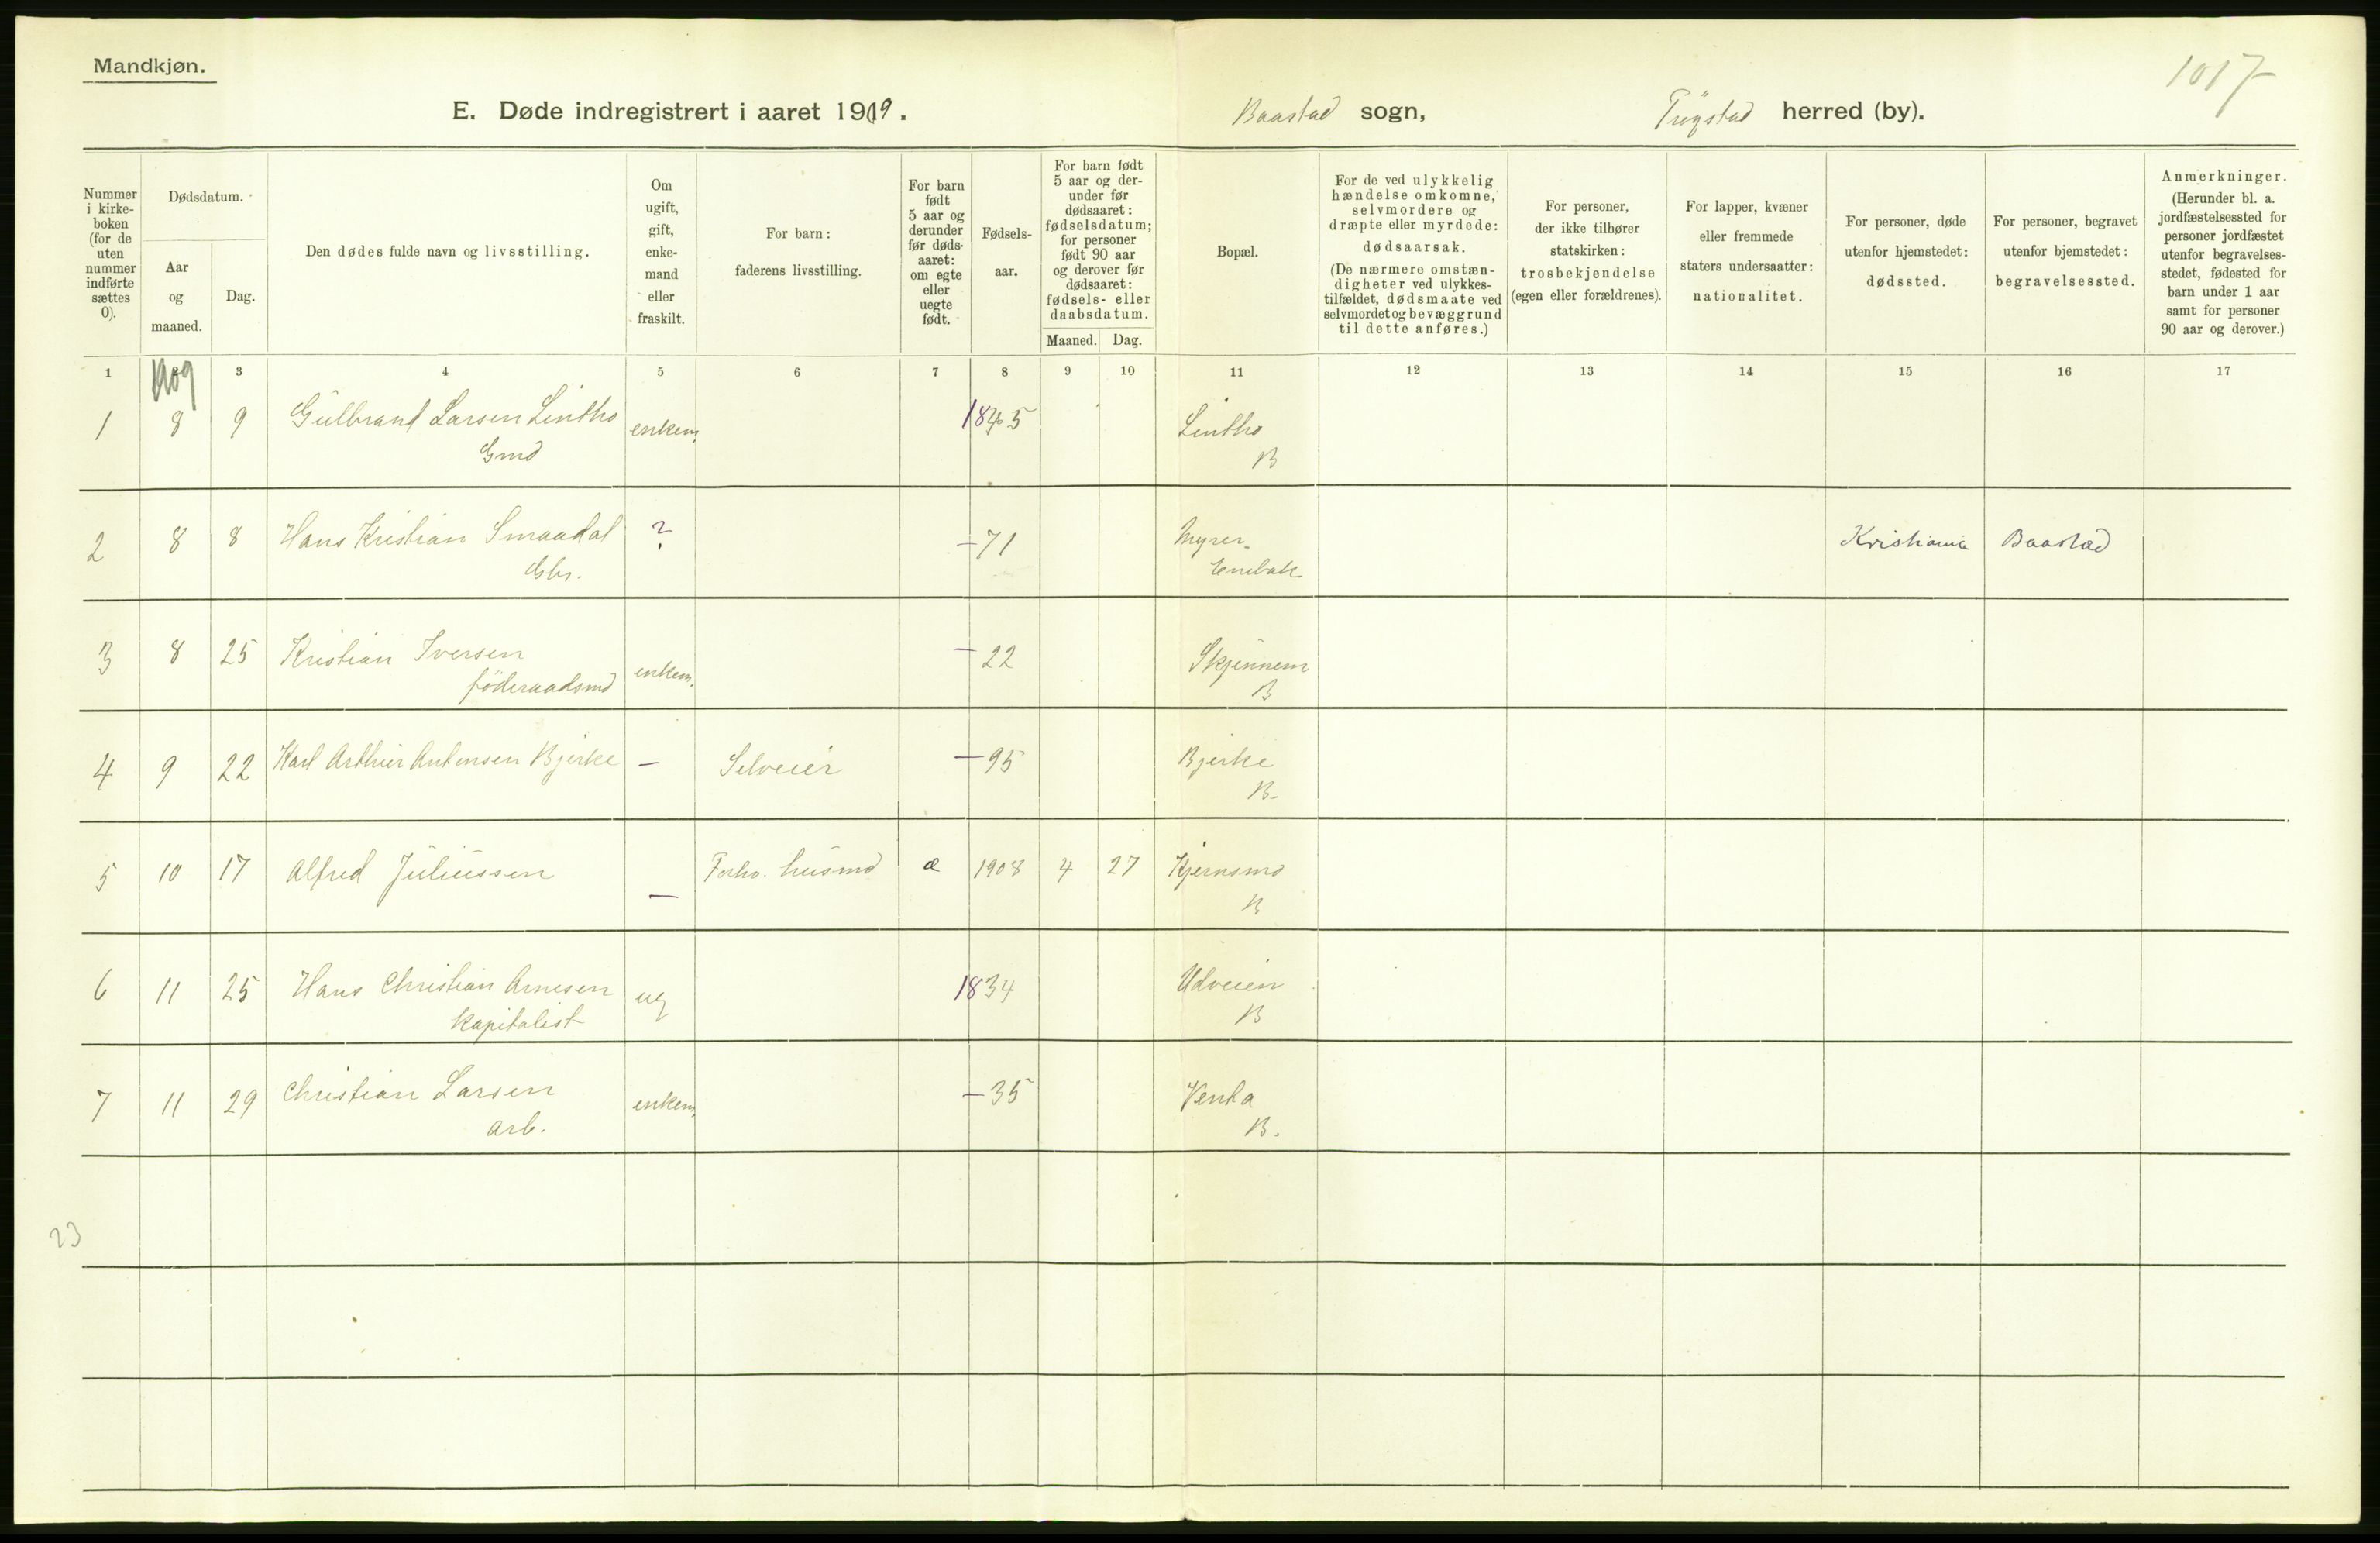 Mandkjøn.
1017
E. Døde indregistrert i aaret 1909.
Baastad sogn, Trøgstad herred (by).
Nummer i kirke- boken (for de uten nummer indførte sættes 0).
Dødsdatum.
Aar og maaned.
Dag.
Den dødes fulde navn og livsstilling.
Om ugift, gift, enke- mand eller fraskilt.
For barn: faderens livsstilling.
For barn født 5 aar og derunder før døds- aaret: om egte eller uegte født.
Fødsels- aar.
For barn født 5 aar og der- under før dødsaaret: fødselsdatum; for personer født 90 aar og derover før dødsaaret: fødsels- eller daabsdatum.
Maaned. Dag.
Bopæl.
For de ved ulykkelig hændelse omkomne, selvmordere og dræpte eller myrdede: dødsaarsak. (De nærmere omstæn- digheter ved ulykkes- tilfældet, dødsmaate ved selvmordet og bevæggrund til dette anføres.)
For personer, der ikke tilhører statskirken: trosbekjendelse (egen eller forældrenes).
For lapper, kvæner eller fremmede staters undersaatter: nationalitet.
For personer, døde utenfor hjemstedet: dødssted.
For personer, begravet utenfor hjemstedet: begravelsessted.
Anmerkninger. (Herunder bl. a. jordfæstelsessted for personer jordfæstet utenfor begravelses- stedet, fødested for barn under 1 aar samt for personer 90 aar og derover.)
1 2 3 4 5 6 7 8 9 10 11 12 13 14 15 16 17
1909
1 8 9 Gulbrand Larsen Lintho enkem. 1845 Lintho
Gmd B
2 8 8 Hans Kristian Smaadal ? —71 Myrer Kristiania Baastad
Gbr. Enebak
3 8 25 Kristian Iversen enkem. —22 Skjennem
föderaadsmd B
4 9 22 Karl Arthur Antonsen Bjerke — Selveier —95 Bjerke
B.
5 10 17 Alfred Juliussen — Forhv. husmd æ 1908 4 27 Kjernsmo
B
6 11 25 Hans Christian Arnesen ug 1834 Udveien
kapitalist B
7 11 29 Christian Larsen enkem. —35 Venta
arb. B.
23